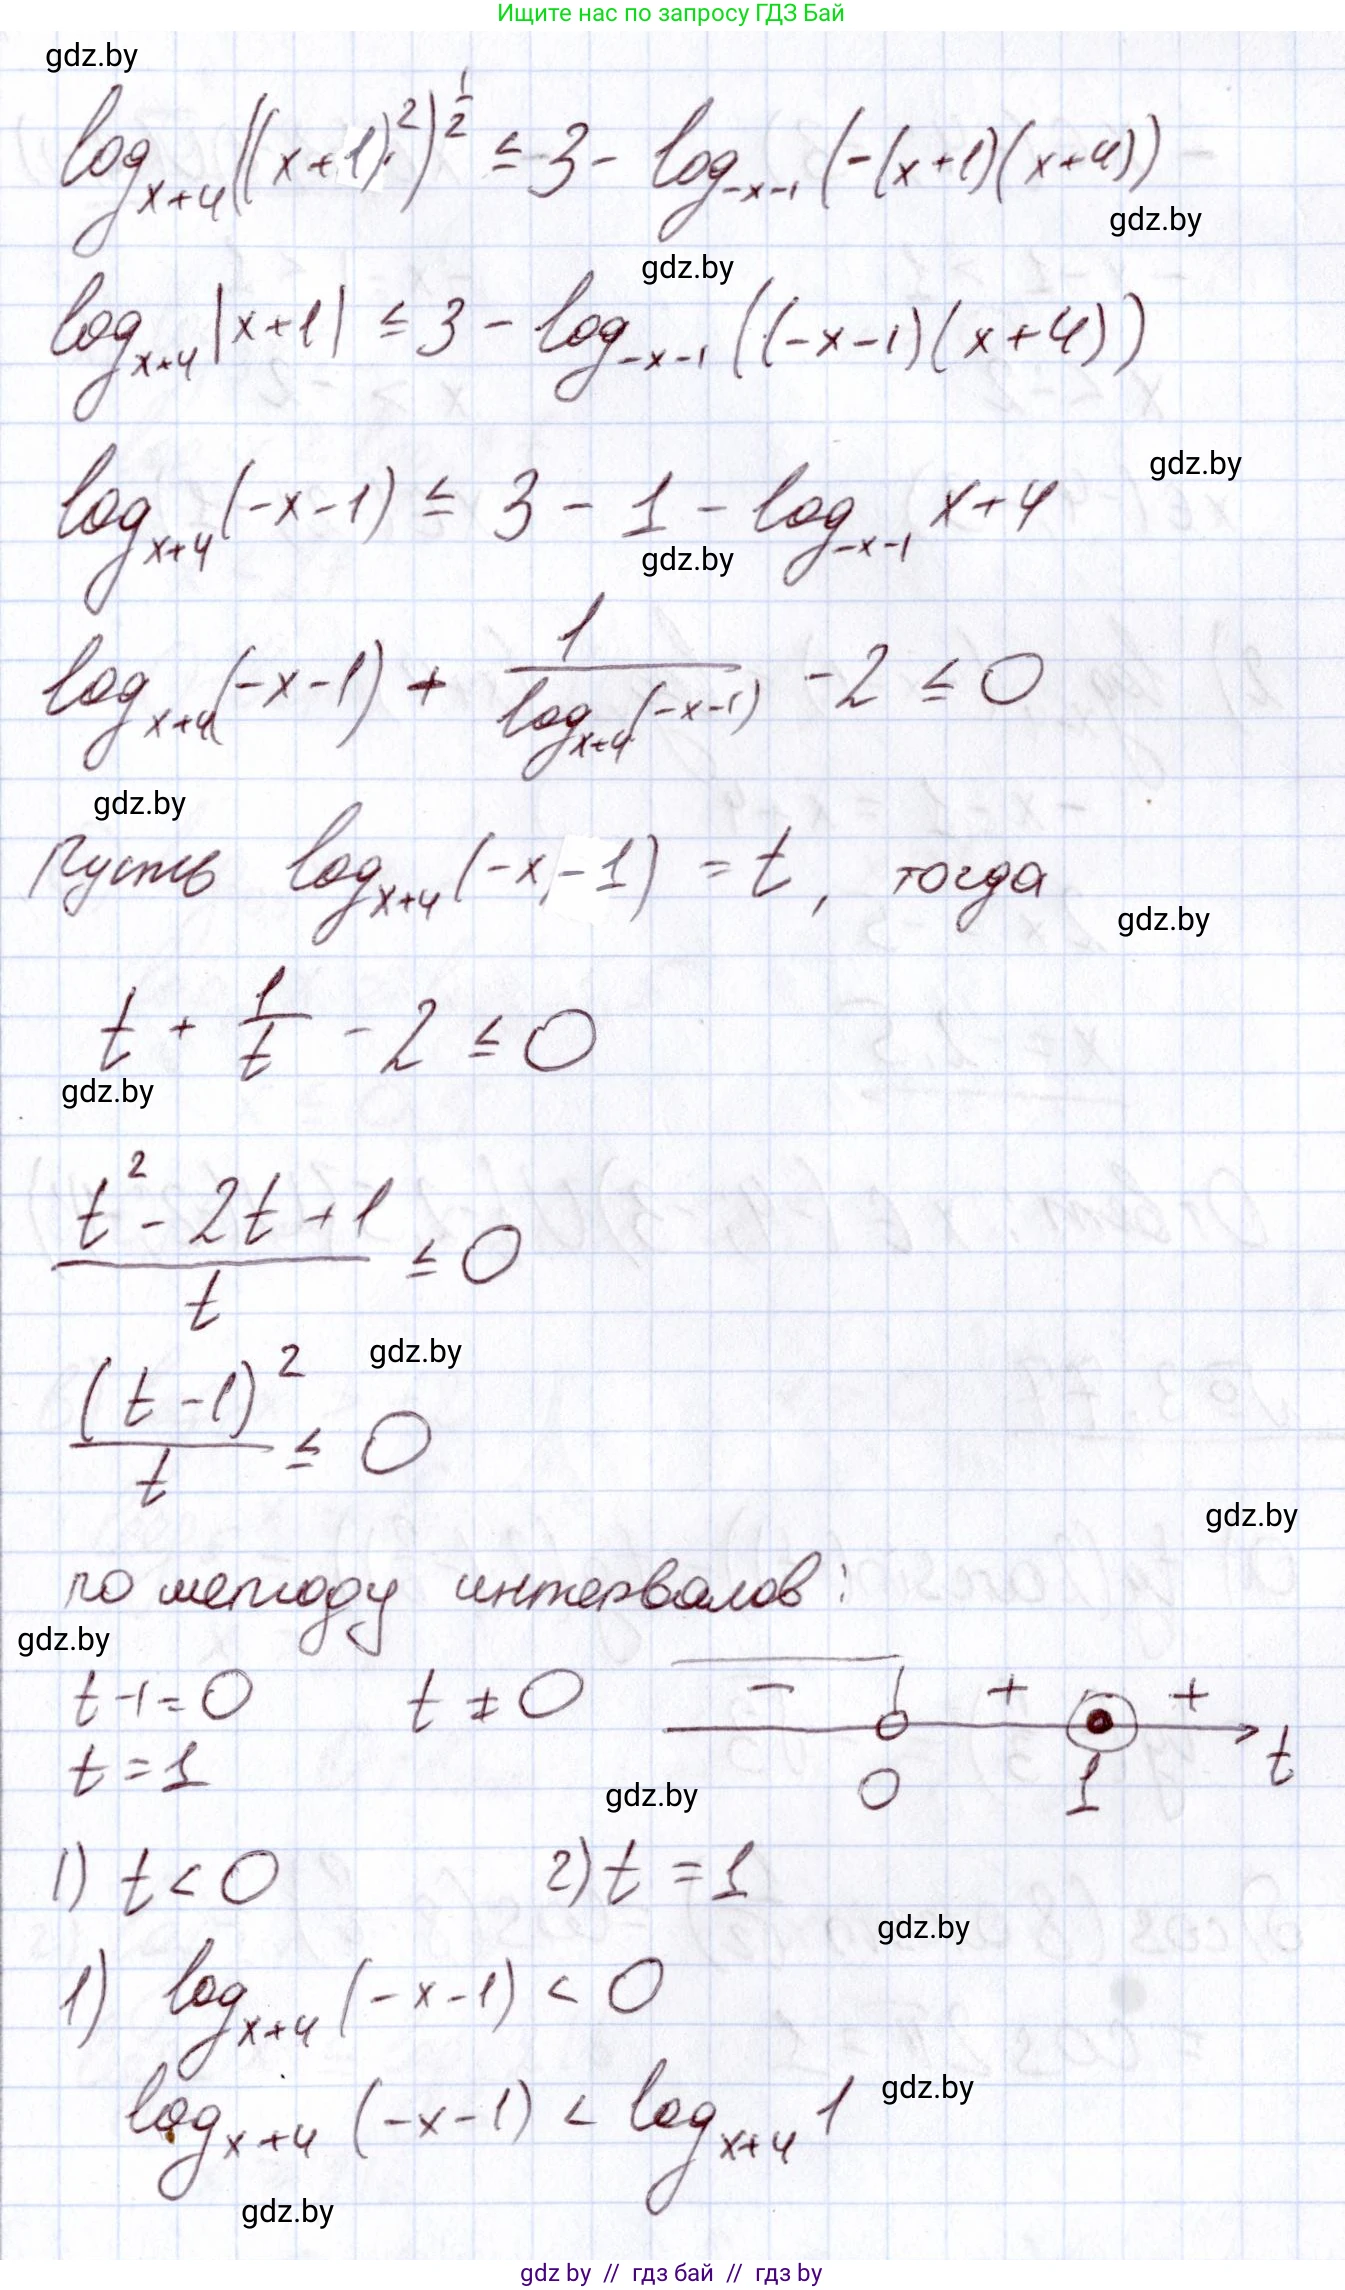 Ищите нас по запросу ГДЗ Бай
gdz.by
log_{x+4}((x+1)^2)^{1/2} ≤ 3 - log_{-x-1}(-(x+1)(x+4))
gdz.by
gdz.by
log_{x+4}|x+1| ≤ 3 - log_{-x-1}((-x-1)(x+4))
gdz.by
log_{x+4}(-x-1) ≤ 3 - 1 - log_{-x-1} x+4
gdz.by
log_{x+4}(-x-1) + 1/log_{x+4}(-x-1) - 2 ≤ 0
gdz.by
Пусть log_{x+4}(-x-1) = t, тогда
gdz.by
t + 1/t - 2 ≤ 0
gdz.by
(t^2 - 2t + 1)/t ≤ 0
gdz.by
(t-1)^2/t ≤ 0
gdz.by
по методу интервалов:
gdz.by
t-1=0 t ≠ 0 - + + t
t=1 0 1
gdz.by
1) t < 0 2) t = 1
gdz.by
1) log_{x+4}(-x-1) < 0
gdz.by
log_{x+4}(-x-1) < log_{x+4} 1
gdz.by
gdz by // гдз бай // гдз by